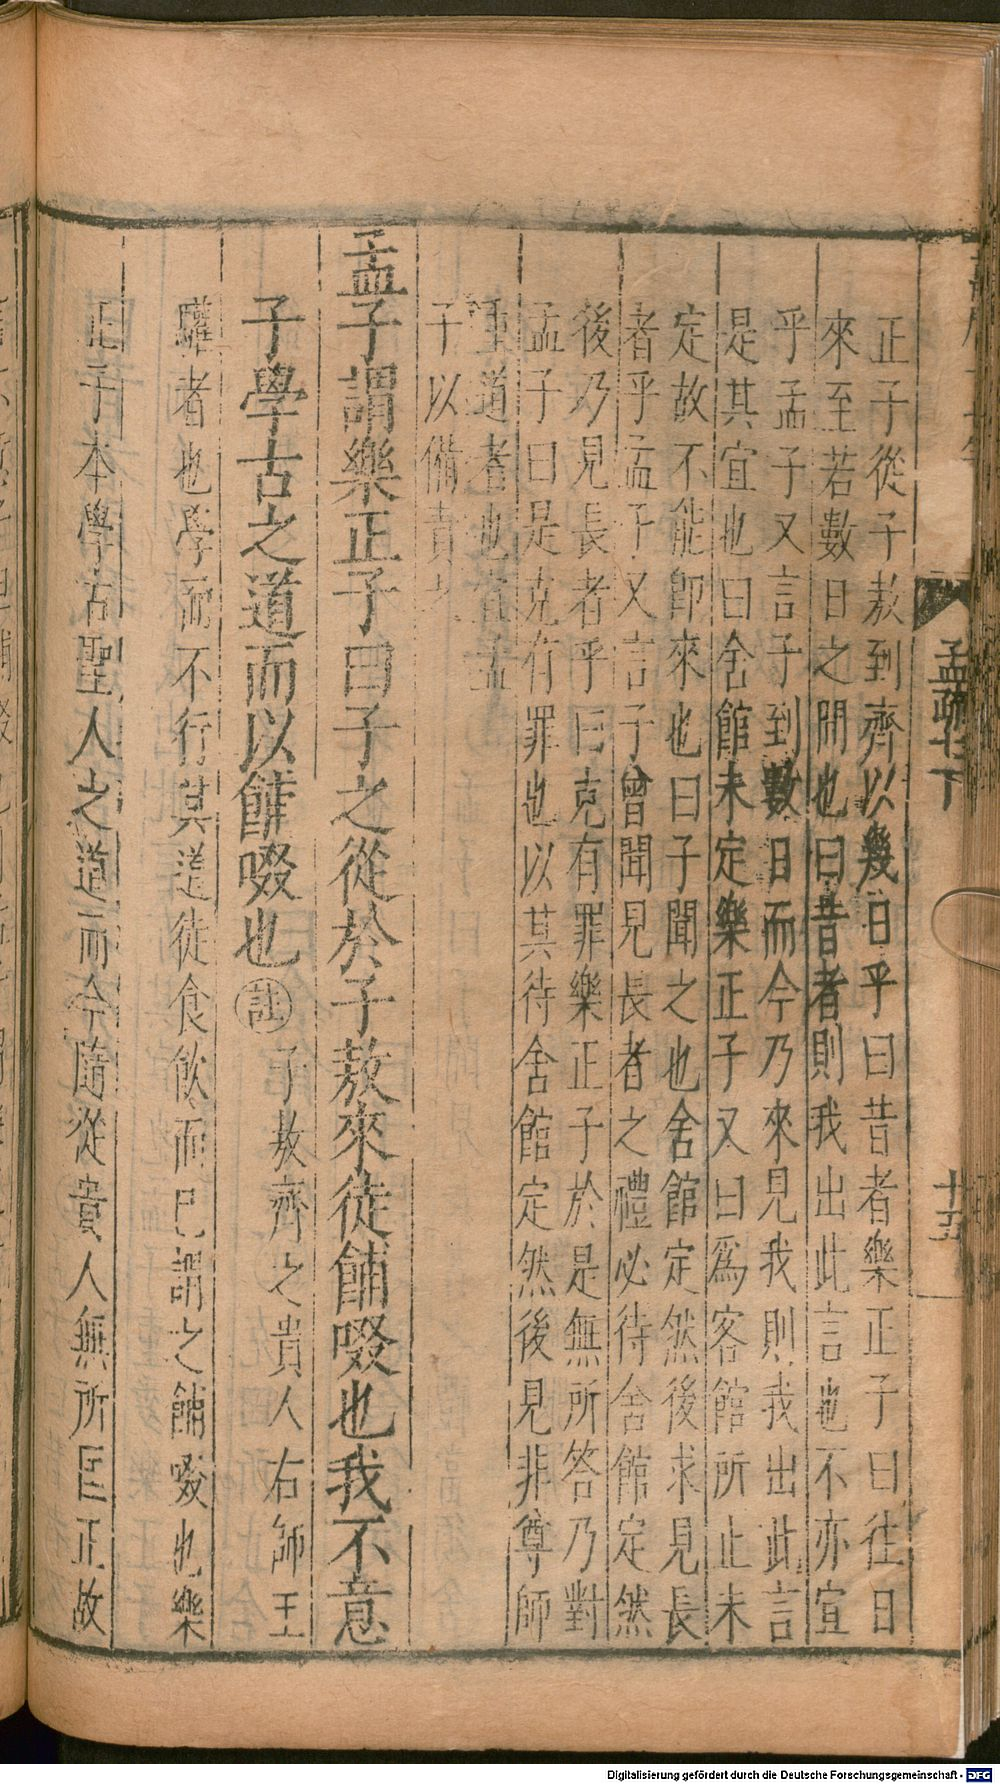 孟疏七下
十五
正子從子敖到齊以幾日乎曰昔者樂正子曰往日
來至若數日之間也曰昔者則我出此言也不亦宜
乎孟子又言子到數日而今乃來見我則我出此言
是其宜也曰舍館未定樂正子又曰爲客館所止未
定故不能卽來也曰子聞之也舍館定然後求見長
者乎孟子又言子曾聞見長者之禮必待舍館定然
後乃見長者乎曰克有罪樂正子於是無所答乃對
孟子曰是克有罪也以其待舍館定然後見非尊師
重道者也宜孟
子以備責之
孟子謂樂正子曰子之從於子敖來徒餔啜也我不意
子學古之道而以餔啜也註子敖齊之貴人右師王
驩者也學而不行其道徒食飲而已謂之餔啜也樂
正子本學古聖人之道而今隨從貴人無所匡正故
Digitalisierung gefördert durch die Deutsche Forschungsgemeinschaft - DFG